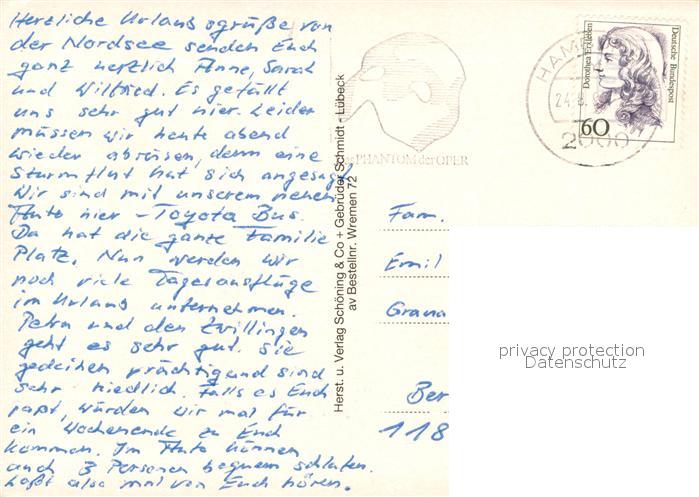 Herzliche Urlaubsgrüße von
der Nordsee senden Euch
ganz herzlich Anne, Sarah
und Wilfried. Es gefällt
uns sehr gut hier. Leider
müssen wir heute abend
wieder abreisen, denn eine
Sturmflut hat sich angesagt.
Wir sind mit unserem neuen
Auto hier – Toyota Bus.
Da hat die ganze Familie
Platz. Nun werden wir
noch viele Tagesausflüge
im Urlaub unternehmen.
Petra und den Zwillingen
geht es sehr gut. Sie
gedeihen prächtig und sind
sehr niedlich. Falls es Euch
paßt, würden wir mal für
ein Wochenende zu Euch
kommen. Im Auto können
auch 3 Personen bequem schlafen.
Laßt also mal von Euch hören.
Herst. u. Verlag Schöning & Co + Gebrüder Schmidt - Lübeck
av Bestellnr. Wremen 72
PHANTOM der OPER
HAM
24.8
2000
Dorothea Erxleben
Deutsche Bundespost
60
Fam.
Emil
Grana
Ber
118
privacy protection
Datenschutz